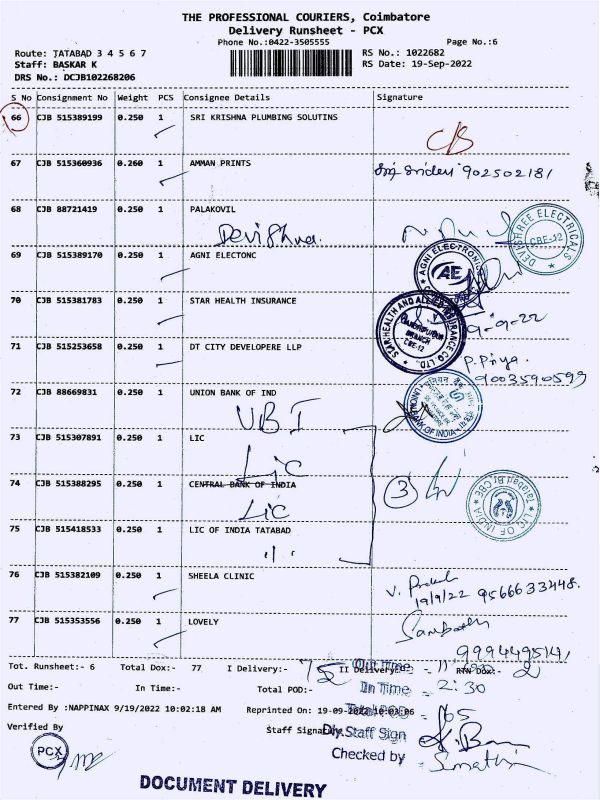 THE PROFESSIONAL COURIERS, Coimbatore
Delivery Runsheet - PCX
Phone No.:0422-3505555
Page No.:6
Route: TATABAD 3 4 5 6 7
RS No.: 1022682
Staff: BASKAR K
RS Date: 19-Sep-2022
DRS No.: DCJB102268206
S No Consignment No Weight PCS Consignee Details Signature
66 CJB 515389199 0.250 1 SRI KRISHNA PLUMBING SOLUTINS
67 CJB 515360936 0.260 1 AMMAN PRINTS
902502181
68 CJB 88721419 0.250 1 PALAKOVIL
DEVISHREE ELECTRICALS CBE-12
69 CJB 515389170 0.250 1 AGNI ELECTONC
AGNI ELECTRONIC AE
70 CJB 515381783 0.250 1 STAR HEALTH INSURANCE
STAR HEALTH AND ALLIED INSURANCE CO. LTD. BRANCH CBE-12
-9-22
71 CJB 515253658 0.250 1 DT CITY DEVELOPERE LLP
P. Priya.
9003590599
72 CJB 88669831 0.250 1 UNION BANK OF IND
UBI
UNION BANK OF INDIA
73 CJB 515307891 0.250 1 LIC
LIC
74 CJB 515388295 0.250 1 CENTRAL BANK OF INDIA
LIC
3
LIC OF INDIA Tatabad Br. CBE
75 CJB 515418533 0.250 1 LIC OF INDIA TATABAD
76 CJB 515382109 0.250 1 SHEELA CLINIC
19/9/22 9566633448.
77 CJB 515353556 0.250 1 LOVELY
9994495141
Tot. Runsheet:- 6 Total Dox:- 77 I Delivery:- 75 II Delivery:- RTN Dox:- 2
Out Time
Out Time:- In Time:- Total POD:-
In Time - 2:30
Entered By :NAPPINAX 9/19/2022 10:02:18 AM Reprinted On: 19-09-2022 10:03:06
Total POD
Verified By Staff Signature
Dly.Staff Sign
Checked by
PCX
DOCUMENT DELIVERY